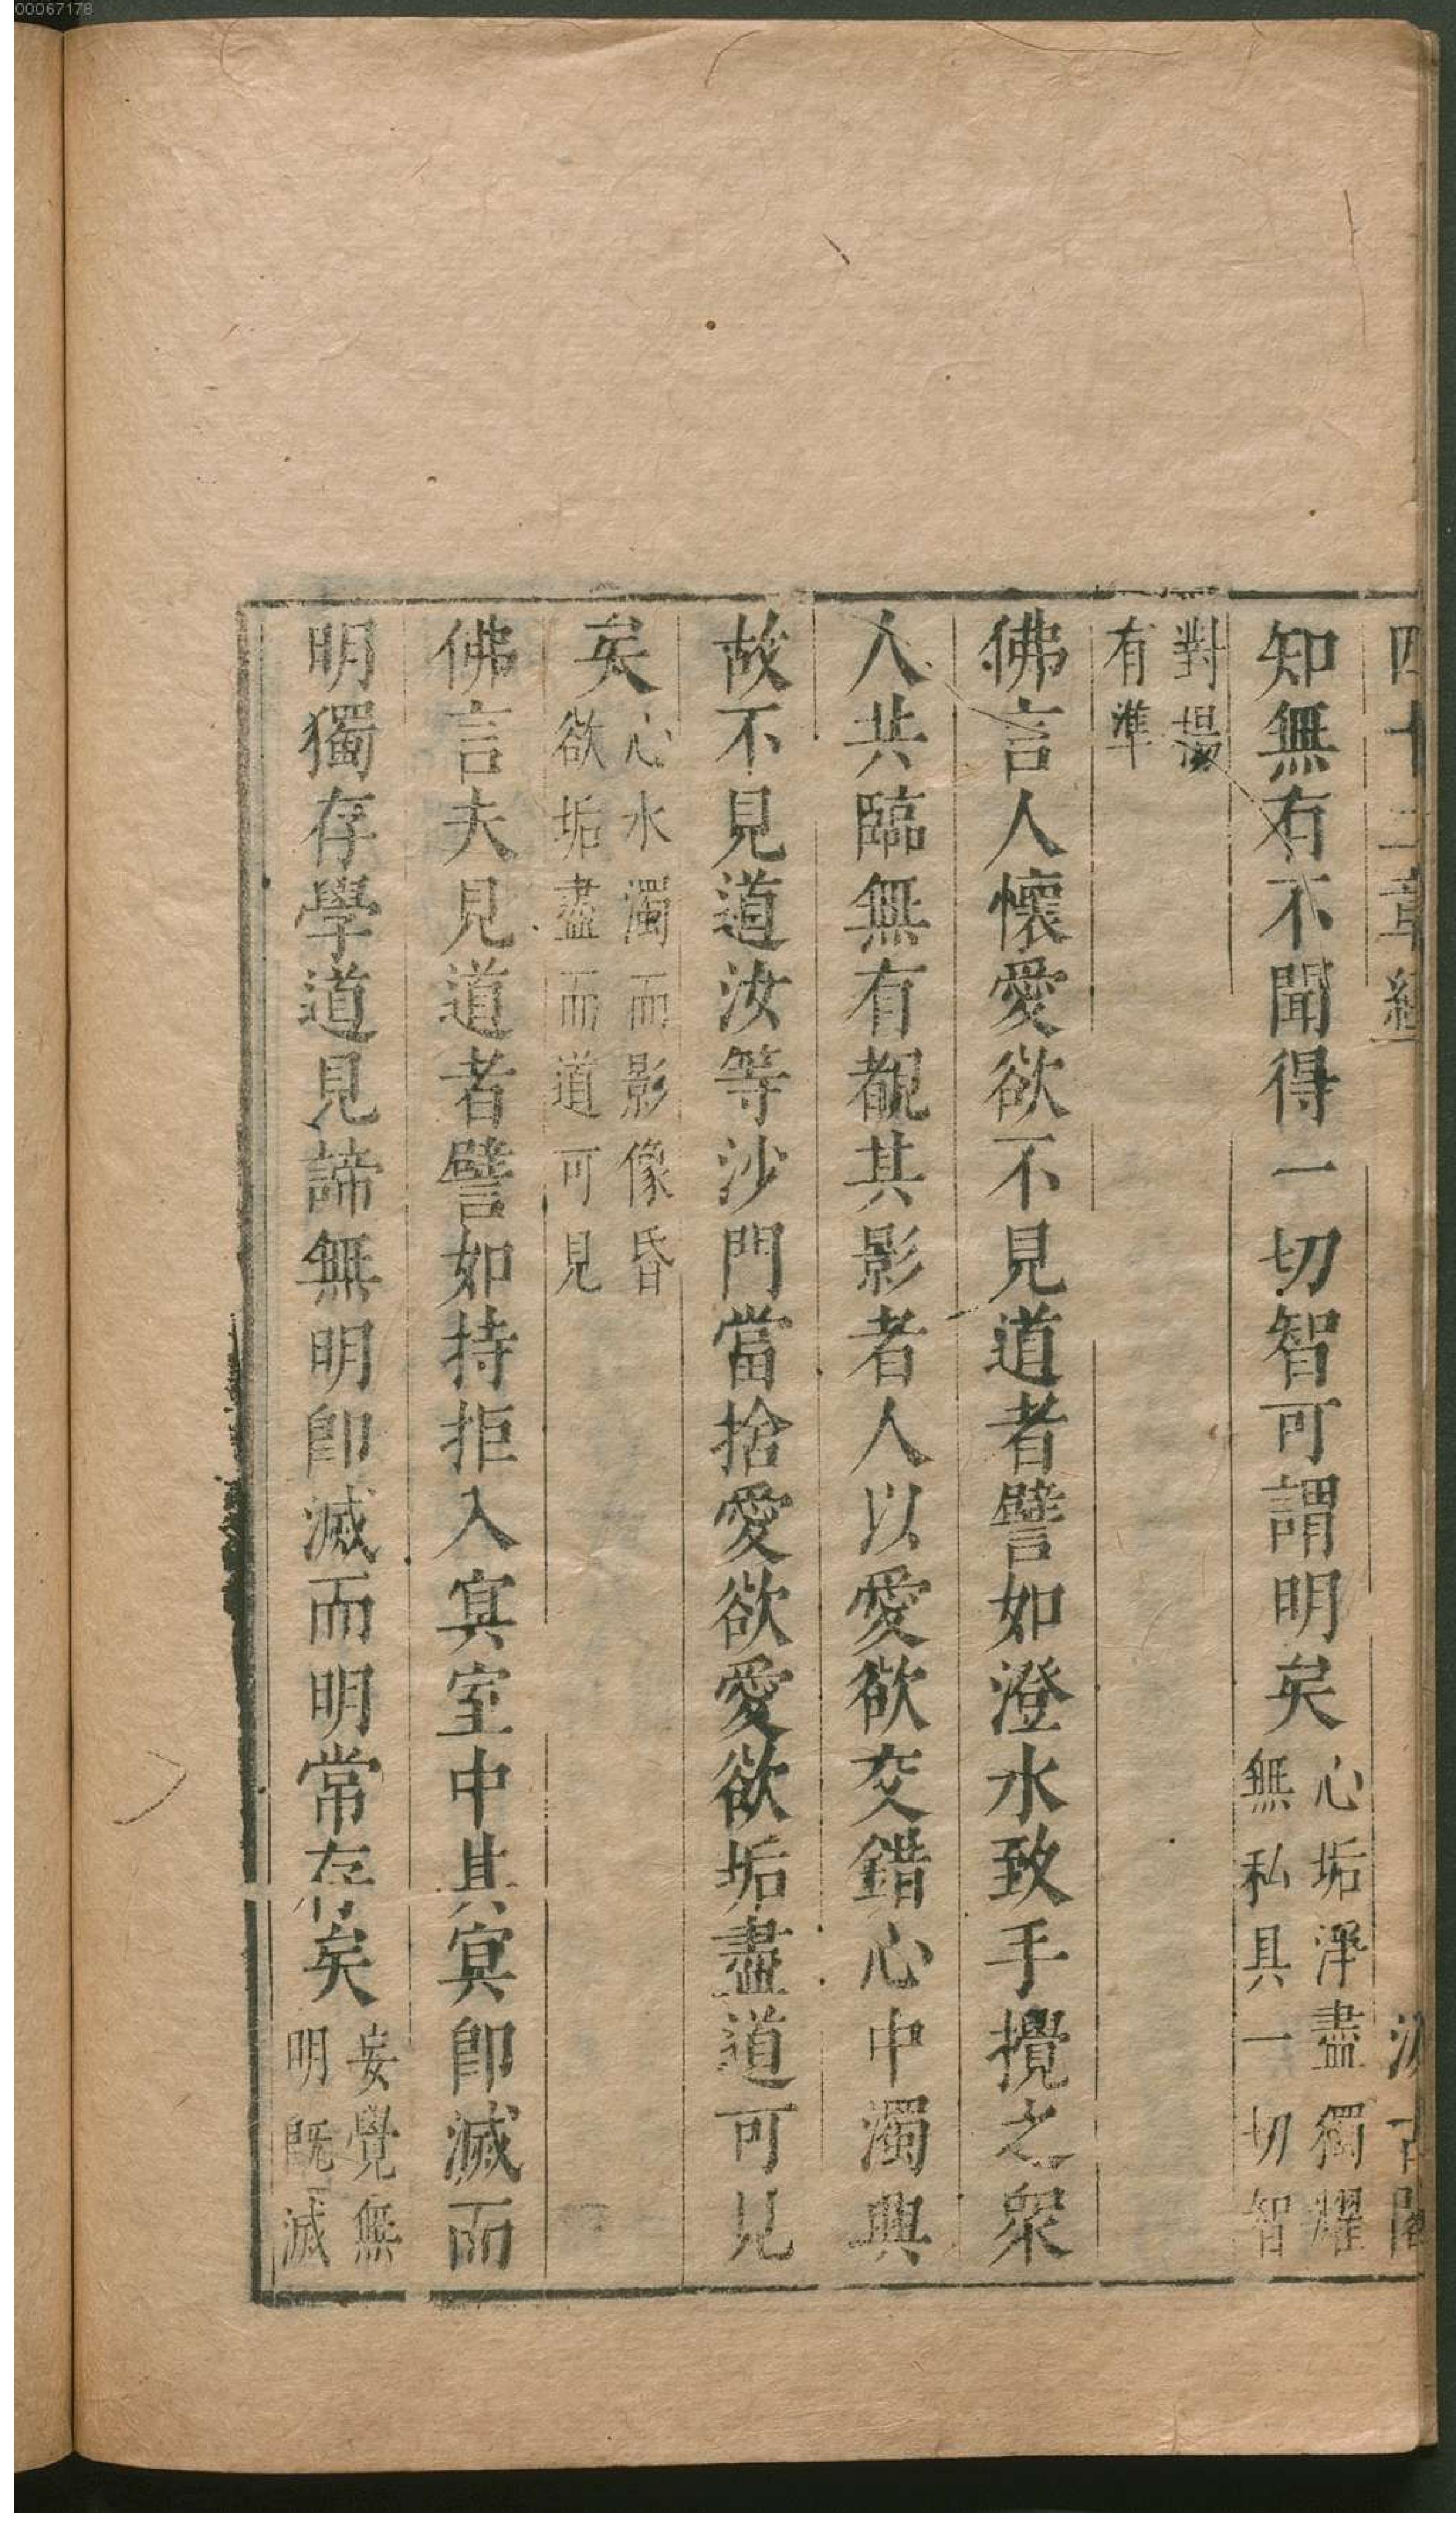 00067178
四十二章經 汲古閣
知無有不聞得一切智可謂明矣心垢淨盡獨耀
無私具一切智
對揚
有準
佛言人懷愛欲不見道者譬如澄水致手攪之衆
人共臨無有覩其影者人以愛欲交錯心中濁興
故不見道汝等沙門當捨愛欲愛欲垢盡道可見
矣心水濁而影像昏
欲垢盡而道可見
佛言夫見道者譬如持炬入寘室中其寘卽滅而
明獨存學道見諦無明卽滅而明常存矣妄覺無
明旣滅